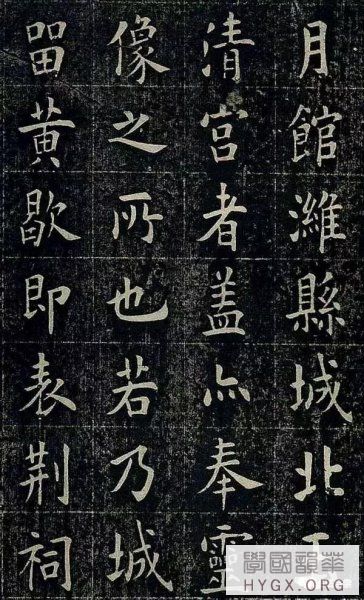 月館濰縣城北玉
清宮者蓋亦奉靈
像之所也若乃城
畱黃歇即表荆祠
華韻國學
HYGX.ORG